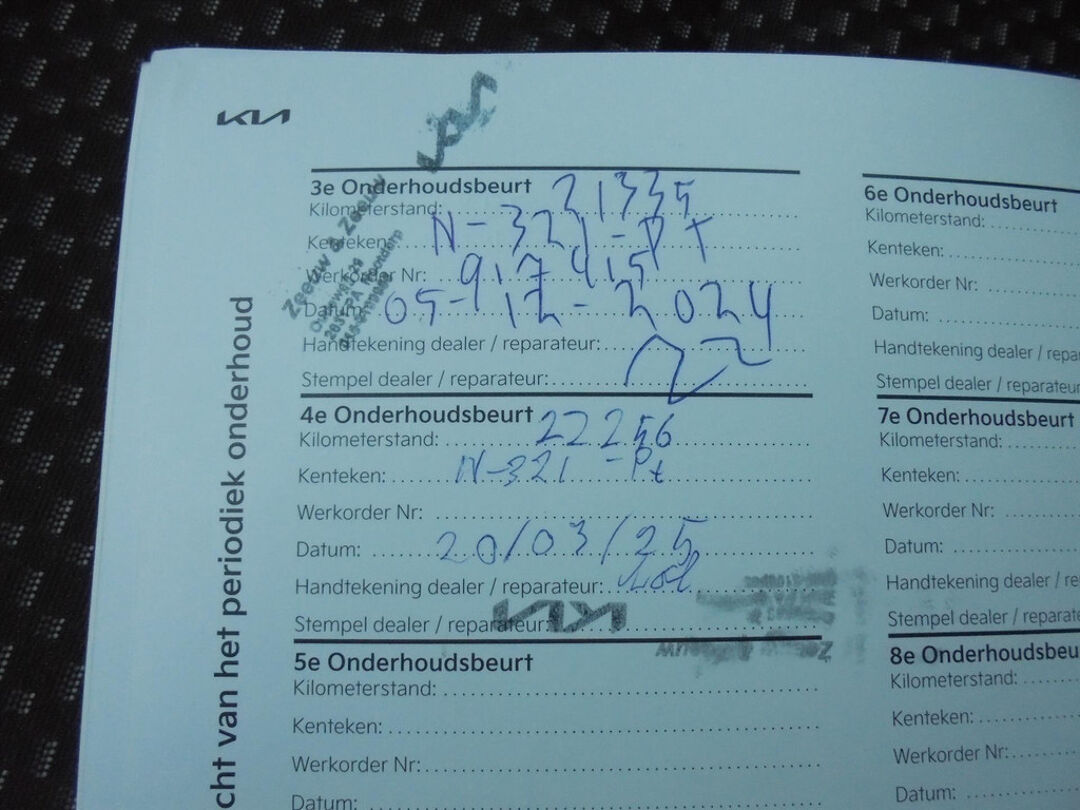 KIA
KIA
3e Onderhoudsbeurt
Kilometerstand: 21335
Kenteken: N-321-PT
Werkorder Nr: 917415
Datum: 05-12-2024
Handtekening dealer / reparateur:
Stempel dealer / reparateur:
Zeeuw & Zeeuw
4e Onderhoudsbeurt
Kilometerstand: 22256
Kenteken: N-321-Pt
Werkorder Nr:
Datum: 20/03/25
Handtekening dealer / reparateur:
Stempel dealer / reparateur:
KIA
Zeeuw & Zeeuw
5e Onderhoudsbeurt
Kilometerstand:
Kenteken:
Werkorder Nr:
Datum:
6e Onderhoudsbeurt
Kilometerstand:
Kenteken:
Werkorder Nr:
Datum:
Handtekening dealer / repar
Stempel dealer / reparateur
7e Onderhoudsbeurt
Kilometerstand:
Kenteken:
Werkorder Nr:
Datum:
Handtekening dealer / re
Stempel dealer / reparate
8e Onderhoudsbeu
Kilometerstand:
Kenteken:
Werkorder Nr:
Datum:
cht van het periodiek onderhoud